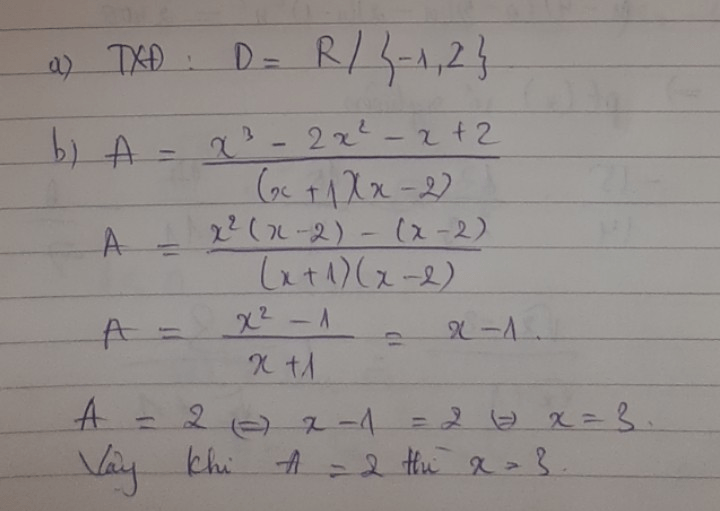 a) TXĐ : D = R / {-1, 2}
b) A = (x³ - 2x² - x + 2) / ((x + 1)(x - 2))
A = (x²(x-2) - (x-2)) / ((x+1)(x-2))
A = (x² - 1) / (x + 1) = x - 1.
A = 2 ⇔ x - 1 = 2 ⇔ x = 3.
Vậy khi A = 2 thì x = 3.